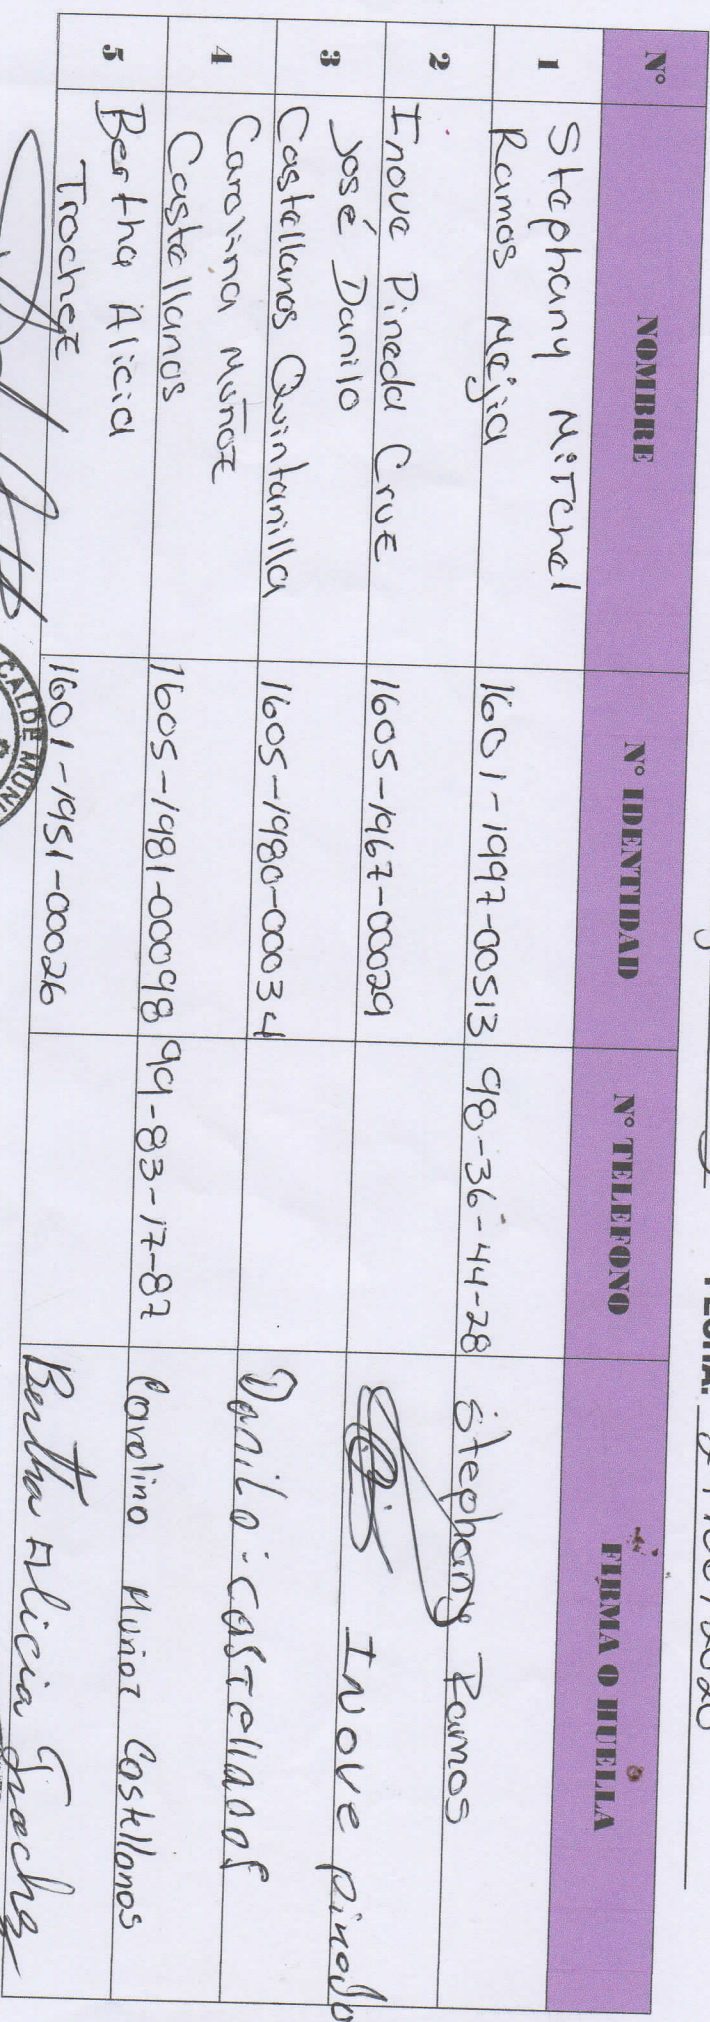 FECHA:
N° NOMBRE N° IDENTIDAD N° TELEFONO FIRMA O HUELLA
1 Stephany Mitchel Ramos Mejia 1601-1997-00513 98-36-44-28 Stephany Ramos
2 Inove Pineda Cruz 1605-1967-00029 Inove Pineda
3 José Danilo Castellanos Quintanilla 1605-1980-00034 Danilo Castellanos
4 Carolina Muñoz Castellanos 1605-1981-00098 99-83-17-87 Carolina Muñoz Castellanos
5 Bertha Alicia Trochez 1601-1951-00026 Bertha Alicia Trochez
CALDE MUNI